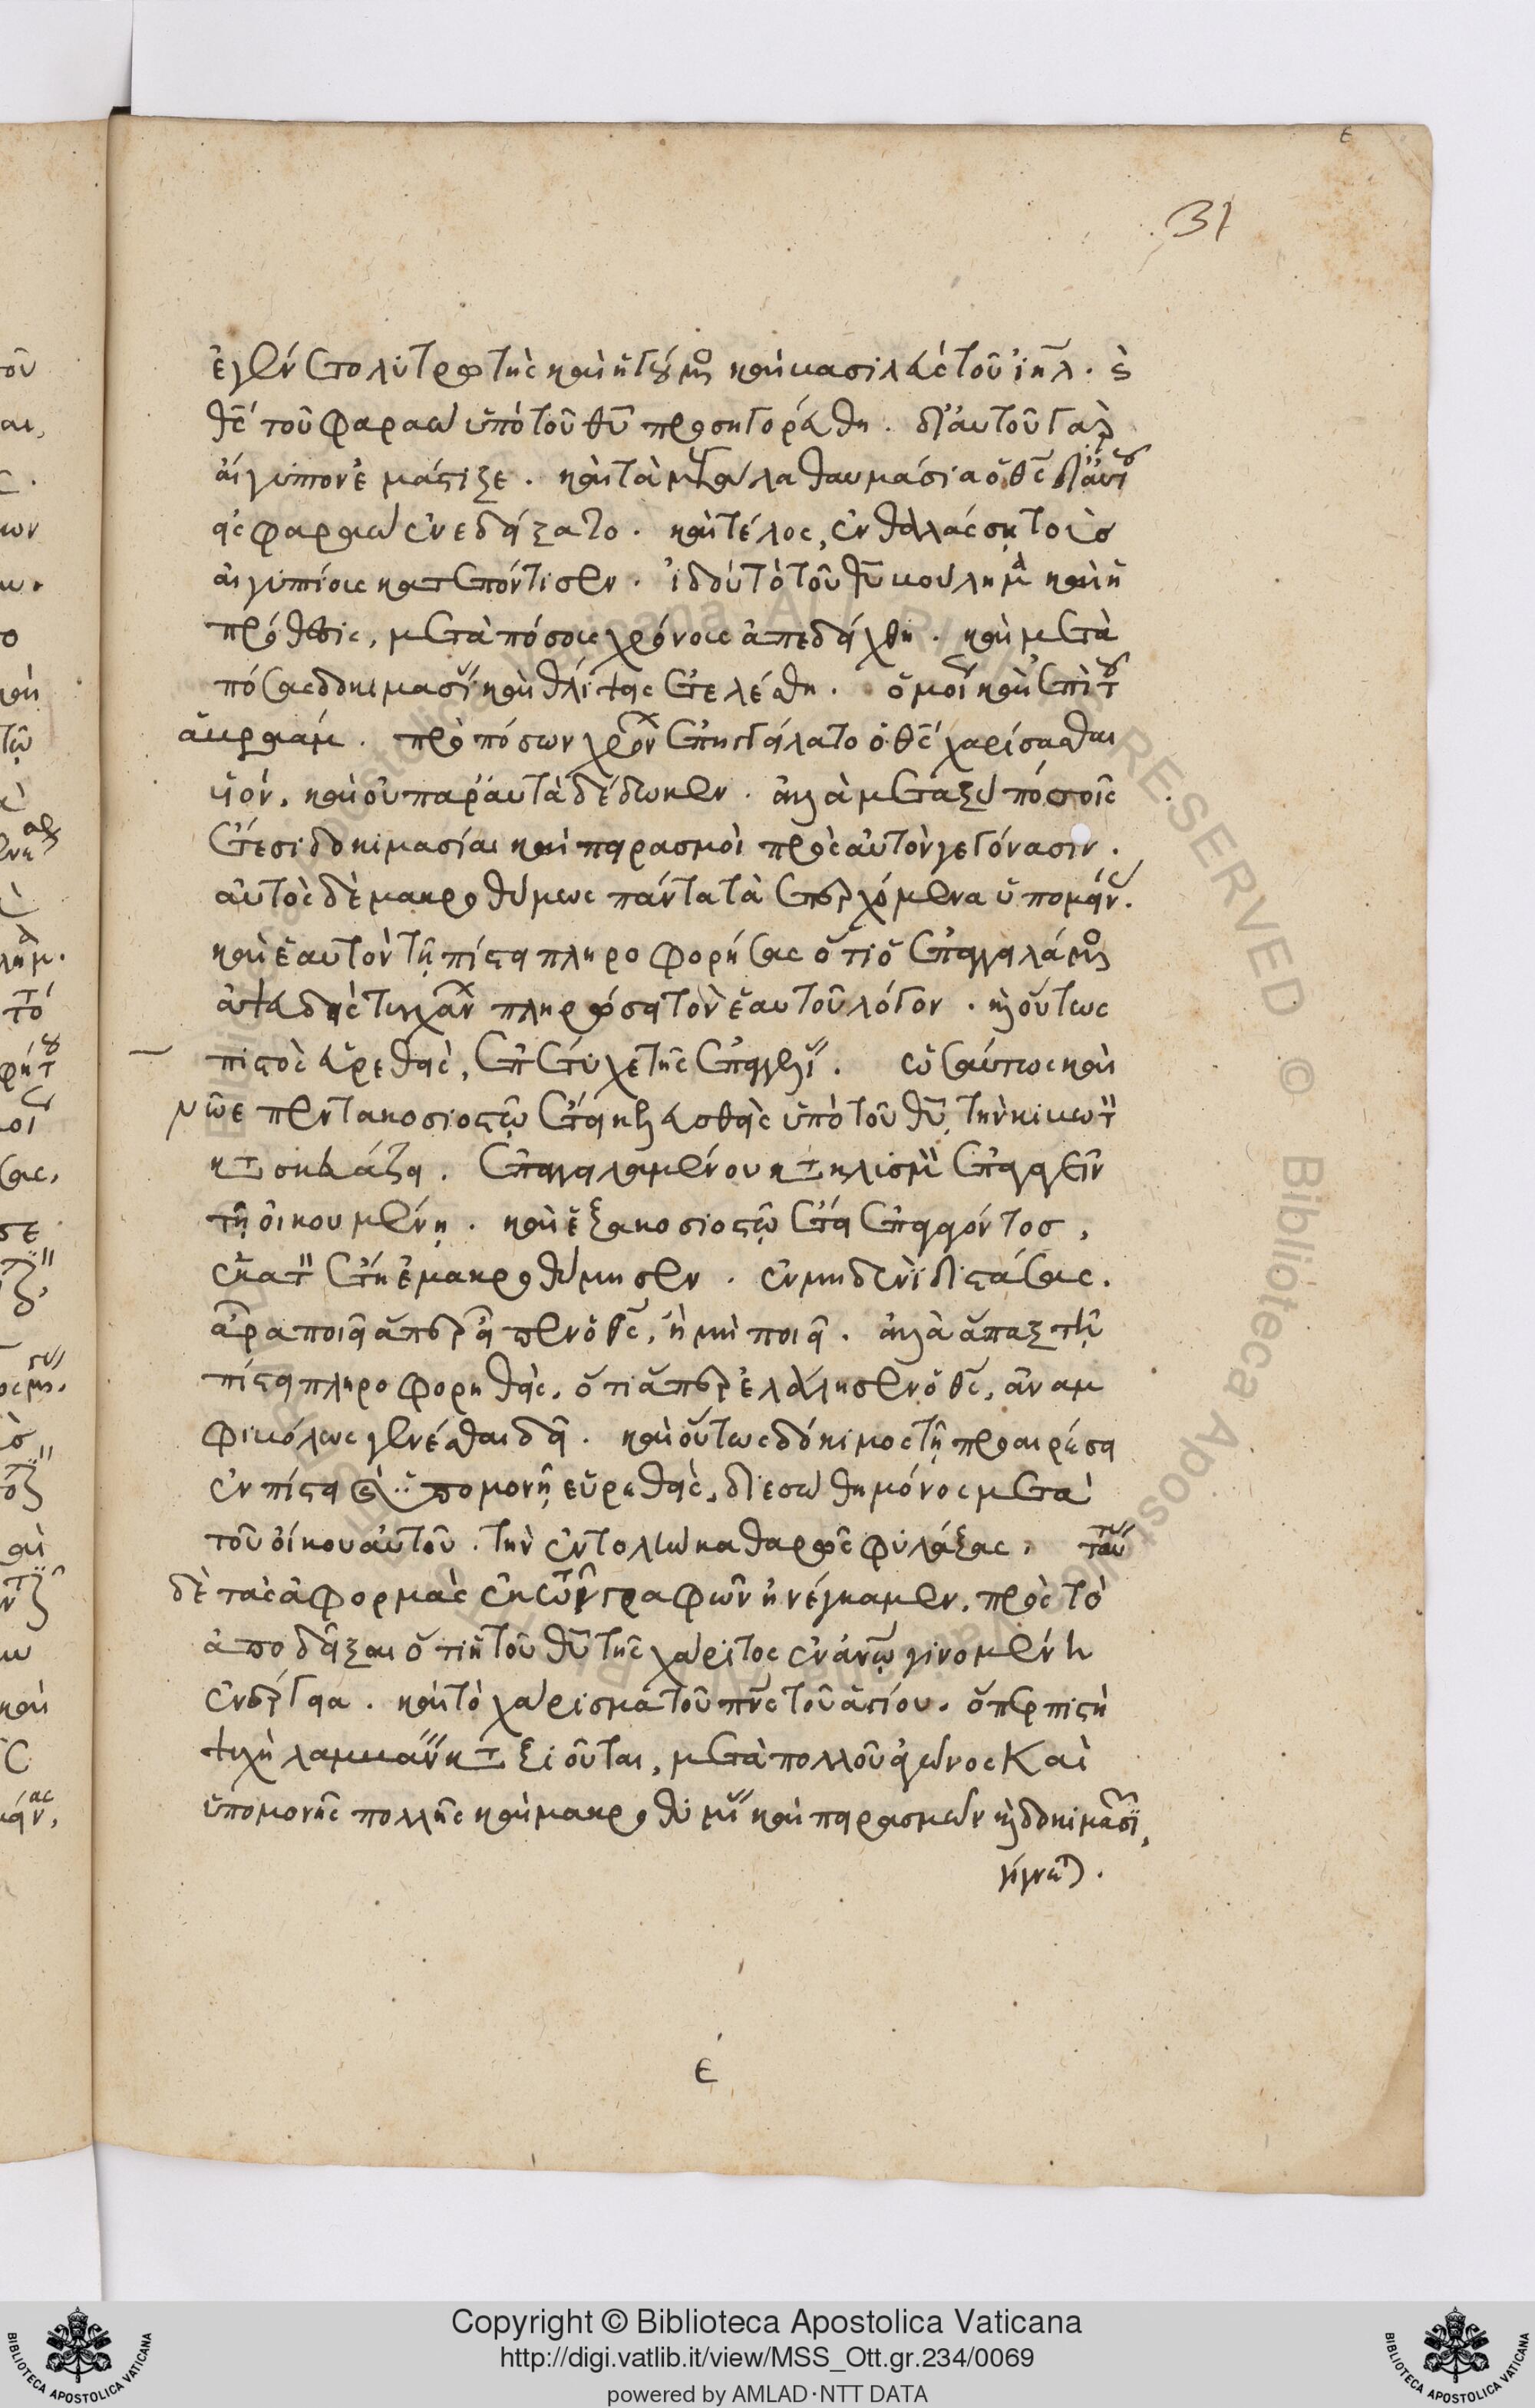 ε
31
ἐγένετο λυτρωτὴς καὶ ἡγούμενος καὶ βασιλεὺς τοῦ ἰηλ. ἐ
θς τοῦ φαραὼ ὑπὸ τοῦ θυ προσηγορεύθη. δι' αὐτοῦ γὰρ
αἴγυπτον ἐμάστιξε. καὶ τὰ μεγάλα θαυμάσια ὁ θς δι' αὐτοῦ
εἰς φαραὼ ἐνεδείξατο. καὶ τέλος, ἐν θαλάσσῃ τοὺσ
αἰγυπτίους κατεπόντισεν. ἰδοὺ τὸ τοῦ θυ βούλημα καὶ ἡ
πρόθεσις, μετὰ πόσους χρόνους ἀπεδείχθη. καὶ μετὰ
πόσας δοκιμασίας καὶ θλίψεις ἐτελέσθη. ὁμοίως καὶ ἐπὶ τοῦ
ἀβραάμ. πρὸ πόσων χρόνων ἐπηγγείλατο ὁ θς χαρίσασθαι
υἱόν, καὶ οὐ παραυτὰ δέδωκεν. ἀλλὰ μεταξὺ πόσοις
ἔτεσι δοκιμασίαι καὶ πειρασμοὶ πρὸς αὐτὸν γεγόνασιν.
αὐτὸς δὲ μακροθύμως πάντα τὰ ἐπερχόμενα ὑπομείνας.
καὶ ἑαυτὸν τῇ πίστει πληροφορήσας ὅτι ὁ ἐπαγγειλάμενος
ἀψευδὴς τυγχάνων πληρώσει τὸν ἑαυτοῦ λόγον. καὶ οὕτως
πιστὸς εὑρεθεὶς, ἐπέτυχε τῆς ἐπαγγελίας. ὡσαύτως καὶ
νῶε πεντακοσιοστῷ ἔτει κελευσθεὶς ὑπὸ τοῦ θυ τὴν κιβωτὸν
κατασκευάζειν. ἐπαγγειλαμένου κατακλυσμὸν ἐπαγαγεῖν
τῇ οἰκουμένῃ. καὶ ἑξακοσιοστῷ ἔτει ἐπαγαγόντοσ,
ἑκατὸν ἔτη ἐμακροθύμησεν. ἐν μηδενὶ διστάσας.
ἆρα ποιεῖ ἅπερ εἶπεν ὁ θς, ἢ μὴ ποιεῖ. ἀλλὰ ἅπαξ τῇ
πίστει πληροφορηθεὶς, ὅτι ἅπερ ἐλάλησεν ὁ θς, ἀναμ
φιβόλως γενέσθαι δεῖ. καὶ οὕτως δόκιμος τῇ προαιρέσει
ἐν πίστει καὶ ὑπομονῇ εὑρεθεὶς, διεσώθη μόνος μετὰ
τοῦ οἴκου αὐτοῦ. τὴν ἐντολὴν καθαρῶς φυλάξας. ταύτας
δὲ τὰς ἀφορμὰς ἐκ τῶν γραφῶν ἠνέγκαμεν, πρὸς τὸ
ἀποδεῖξαι ὅτι ἡ τοῦ θυ τῆς χάριτος ἐν ἀνῳ γινομένη
ἐνέργεια. καὶ τὸ χάρισμα τοῦ πνς τοῦ ἁγίου. ὅπερ πιστὴ
ψυχὴ λαμβάνειν καταξιοῦται, μετὰ πολλοῦ ἀγῶνος καὶ
ὑπομονῆς πολλῆς καὶ μακροθυμίας καὶ πειρασμῶν καὶ δοκιμασιῶν,
γίγνεται.
ε
Copyright © Biblioteca Apostolica Vaticana
http://digi.vatlib.it/view/MSS_Ott.gr.234/0069
powered by AMLAD·NTT DATA
BIBLIOTECA APOSTOLICA VATICANA
BIBLIOTECA APOSTOLICA VATICANA